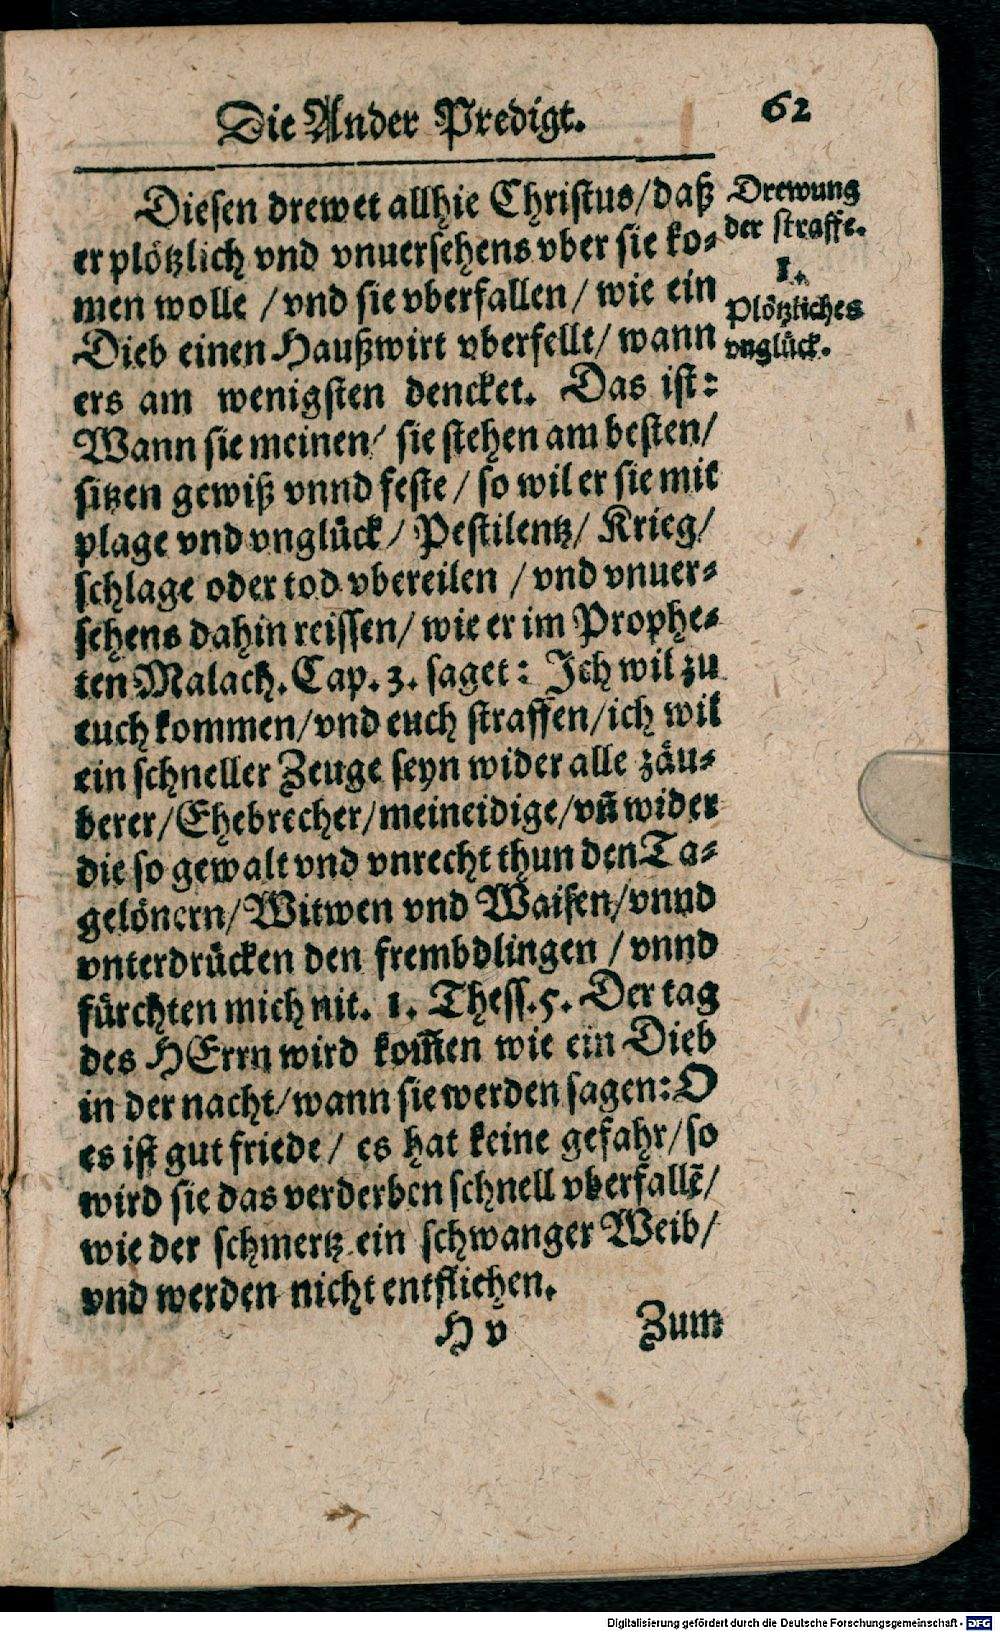 Die Ander Predigt. 62
Diesen drewet allhie Christus/daß
er plötzlich vnd vnuersehens vber sie ko-
men wolle /vnd sie vberfallen/ wie ein
Dieb einen Haußwirt vberfellt/ wann
ers am wenigsten dencket. Das ist:
Wann sie meinen/ sie stehen am besten/
sitzen gewiß vnnd feste / so wil er sie mit
plage vnd vnglück/ Pestilentz/ Krieg/
schlage oder tod vbereilen /vnd vnuer-
sehens dahin reissen/ wie er im Prophe-
ten Malach. Cap. 3. saget: Ich wil zu
euch kommen/vnd euch straffen/ich wil
ein schneller Zeuge seyn wider alle zäu-
berer/Ehebrecher/meineidige/vñ wider
die so gewalt vnd vnrecht thun den Ta-
gelönern/Witwen vnd Waisen/vnnd
vnterdrücken den frembdlingen /vnnd
fürchten mich nit. 1. Thess. 5. Der tag
des HErrn wird kom̃en wie ein Dieb
in der nacht/wann sie werden sagen: O
es ist gut friede/ es hat keine gefahr/so
wird sie das verderben schnell vberfallẽ/
wie der schmertz ein schwanger Weib/
vnd werden nicht entfliehen.
H v Zum
Drewung
der straffe.
1.
Plötzliches
vnglück.
Digitalisierung gefördert durch die Deutsche Forschungsgemeinschaft - DFG